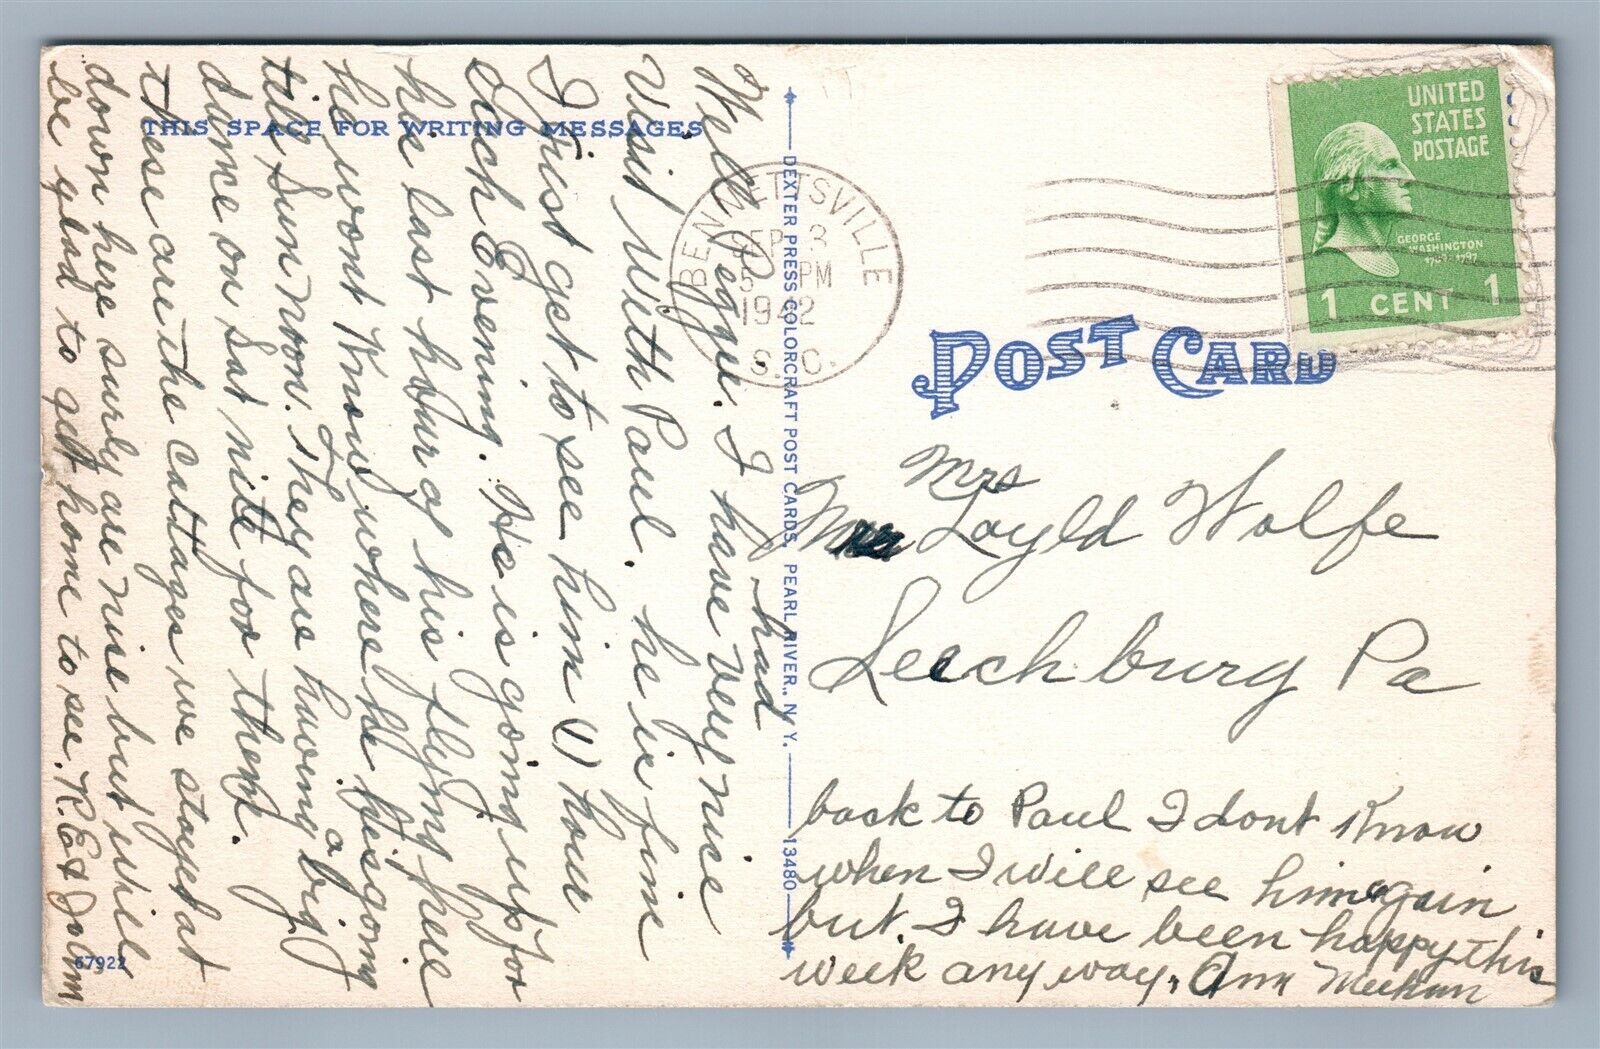 THIS SPACE FOR WRITING MESSAGES
Well Pegge. I have very nice
Visit with Paul. he is fine
I Just get to see him 1 hour
Each Evening. He is going up for
his last hour of his flying here
he wont Know where he is going
till Sun noon. They are having a big
dance on Sat nite for them.
These are the cattages we stayed at
down here surly are nise but will
be glad to get home to see. R.E. & John
had
67922
DEXTER PRESS COLORCRAFT POST CARDS, PEARL RIVER., N. Y.
13480
BENNETTSVILLE
SEP 3
5 PM
1942
S.C.
UNITED
STATES
POSTAGE
GEORGE
WASHINGTON
1789-1797
1 CENT 1
POST CARD
Mrs
Loyld Wolfe
Leechburg Pa
back to Paul I dont Know
when I will see him again
but. I have been happy this
week any way. Ann Meehan